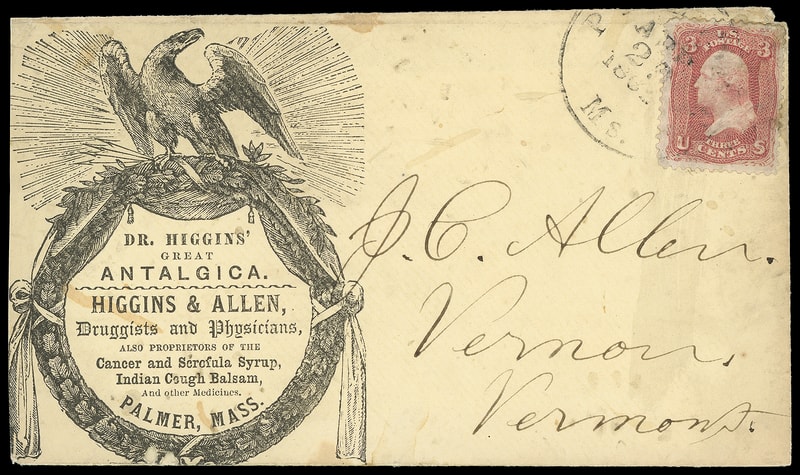 DR. HIGGINS'
GREAT
ANTALGICA.
HIGGINS & ALLEN,
Druggists and Physicians,
ALSO PROPRIETORS OF THE
Cancer and Scrofula Syrup,
Indian Cough Balsam,
And other Medicines.
PALMER, MASS.
3 U.S. 3
POSTAGE
U THREE S
CENTS
Ms.
J. C. Allen.
Vernon,
Vermont.